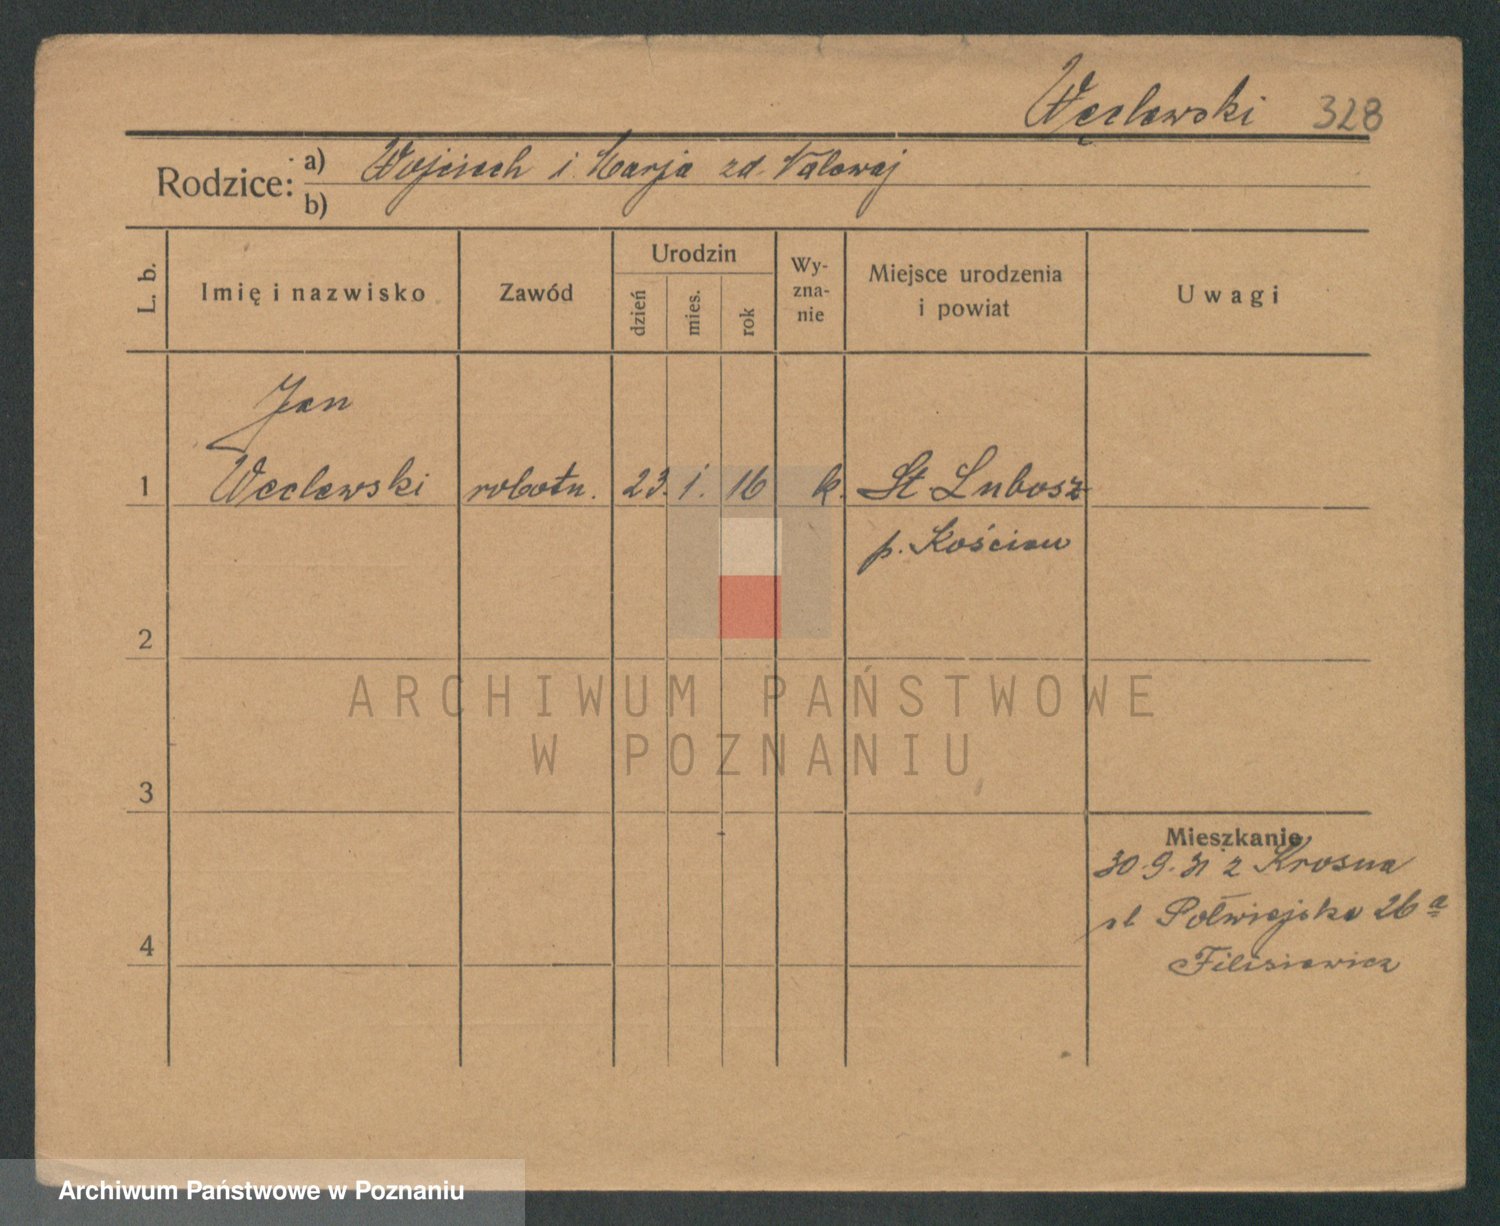 Węclewski 328
Rodzice: a) Wojciech i Marja zd. Nalewaj
b)
L. b.
Imię i nazwisko
Zawód
Urodzin
dzień
mies.
rok
Wy-
zna-
nie
Miejsce urodzenia
i powiat
Uwagi
Jan
1 Węclewski robotn. 23. 1. 16 k. St. Lubosz
p. Kościan
2
ARCHIWUM PAŃSTWOWE
W POZNANIU
3
Mieszkanie
30.9.31 z Krosna
ul Półwiejska 26 a
4
Filisiewicz
Archiwum Państwowe w Poznaniu